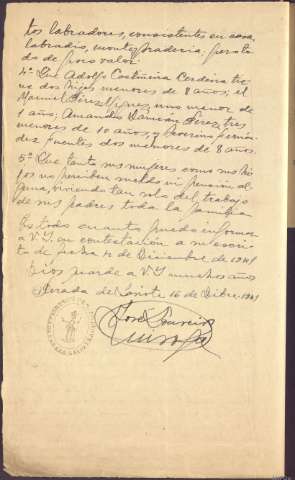 tos labradores, consistentes en casa,
labradio, monte y praderia, pero to-
do de poco valor.
4º Que Adolfo Castiñeira Cerdeira tie-
ne dos hijos menores de 8 años; el
Manuel Perez Yanez, uno menor de
1 año; Amandio Dameiro Perez, tres
menores de 10 años, y Severino Fernán-
dez Puentes dos menores de 8 años.
5º Que tanto sus mujeres como sus hi-
jos no perciben sueldo ni pensión al-
guna, viviendo tan solo del trabajo
de sus padres toda la familia.
Es todo cuanto puedo informar
a V.S. en contestación a su escri-
to de fecha 4 de Diciembre de 1941
Dios guarde a VS muchos años
Parada de 16 de Dibre 1941
José Loureiro